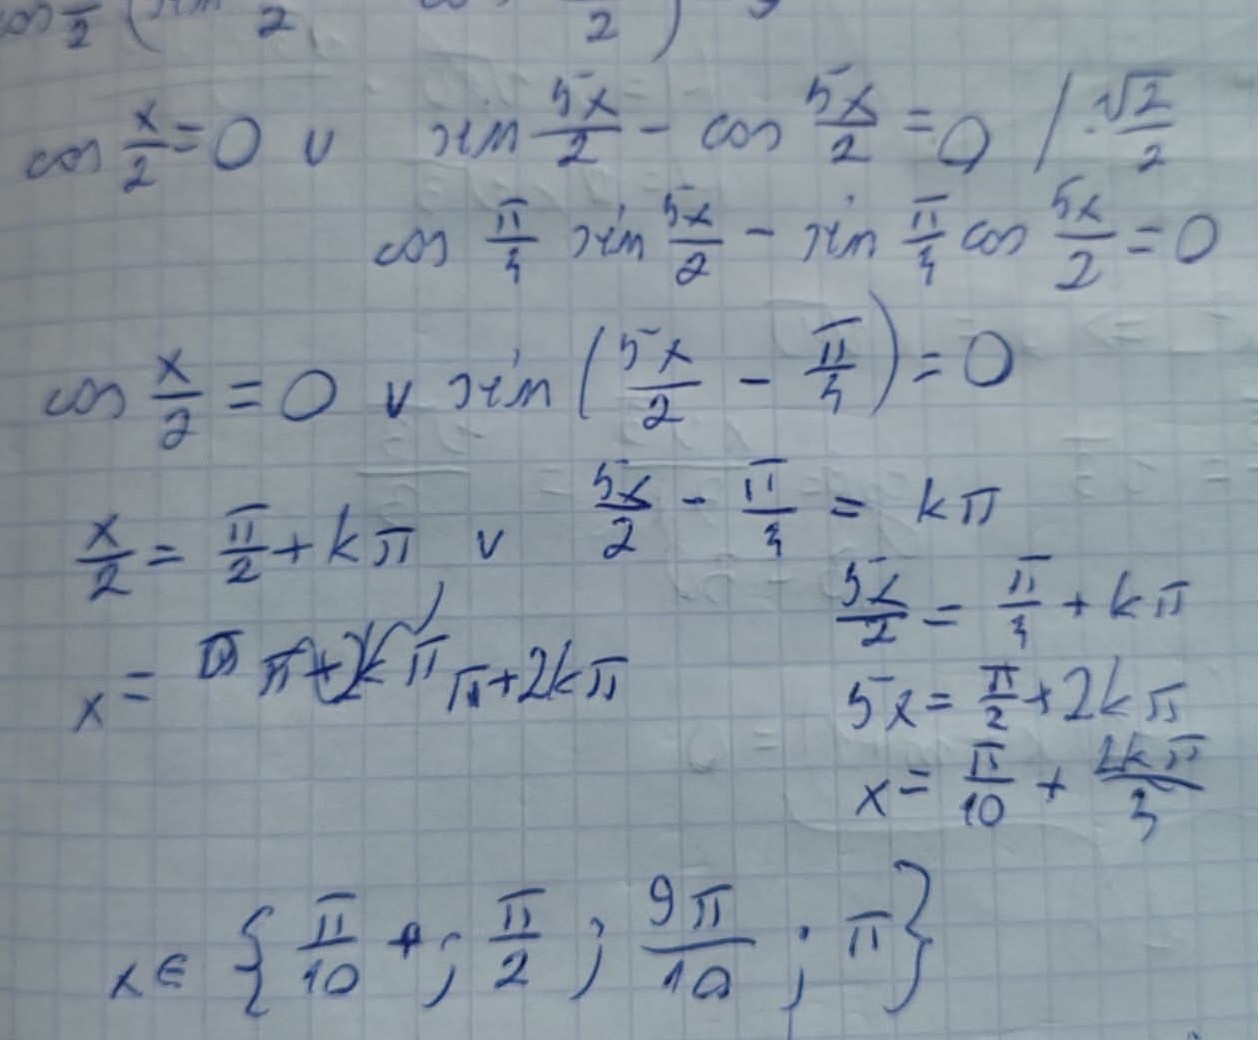 cos 2 (sin 2 cos 2)
cos x/2 = 0 ∨ sin 5x/2 - cos 5x/2 = 0 / · √2/2
cos π/4 sin 5x/2 - sin π/4 cos 5x/2 = 0
cos x/2 = 0 ∨ sin (5x/2 - π/4) = 0
x/2 = π/2 + kπ ∨ 5x/2 - π/4 = kπ
5x/2 = π/4 + kπ
x = π + 2kπ π + 2kπ
5x = π/2 + 2kπ
x = π/10 + 2kπ/5
x ∈ {π/10 ; π/2 ; 9π/10 ; π}